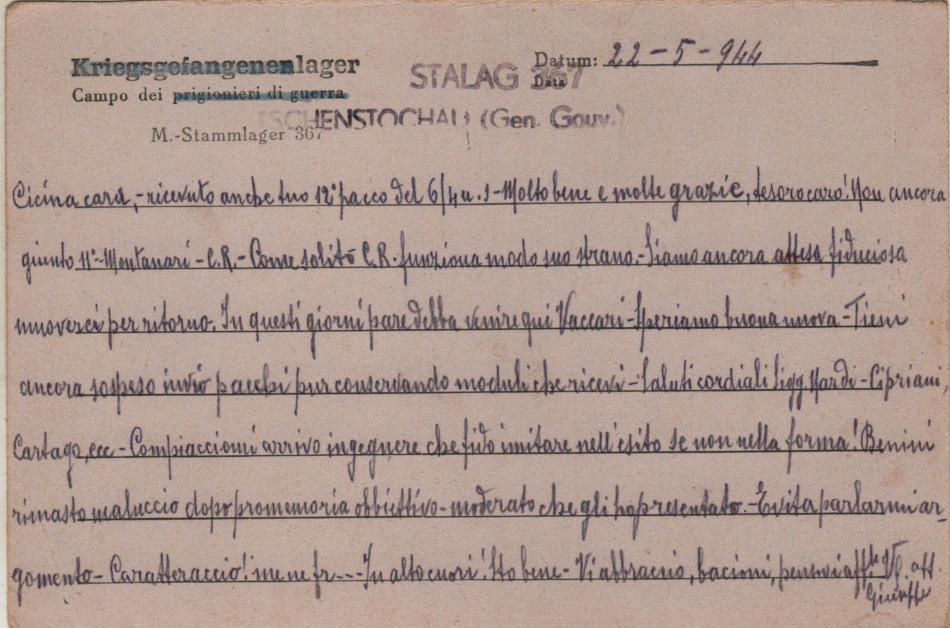 Kriegsgefangenenlager
Campo dei prigionieri di guerra
M.-Stammlager 367
STALAG 367
TSCHENSTOCHAU (Gen. Gouv.)
Datum: 22-5-944
Data
Cicina cara, - ricevuto anche tuo 12° pacco del 6/4 u.s - Molto bene e molte grazie, tesoro caro! Non ancora
giunto 11° - Montanari - C.R. - Come solito C.R. funziona modo suo strano. - Siamo ancora attesa fiduciosa
muoverci per ritorno. In questi giorni pare debba venire qui Vaccari - Speriamo buona nuova - Tieni
ancora sospeso invio pacchi pur conservando moduli che ricevi - Saluti cordiali Sigg. Nardi - Cipriani,
Cartago, ecc - Compiacciomi arrivo ingegnere che fido imitare nell'esito se non nella forma! Benini
rimasto maluccio dopo promemoria obbiettivo - moderato che gli ho presentato. - Evita parlarmi ar-
gomento - Caratteraccio! me ne fr--- In alto cuori! Sto bene - Vi abbraccio, bacioni, pensovi aff.te
aff.
Giuseppe